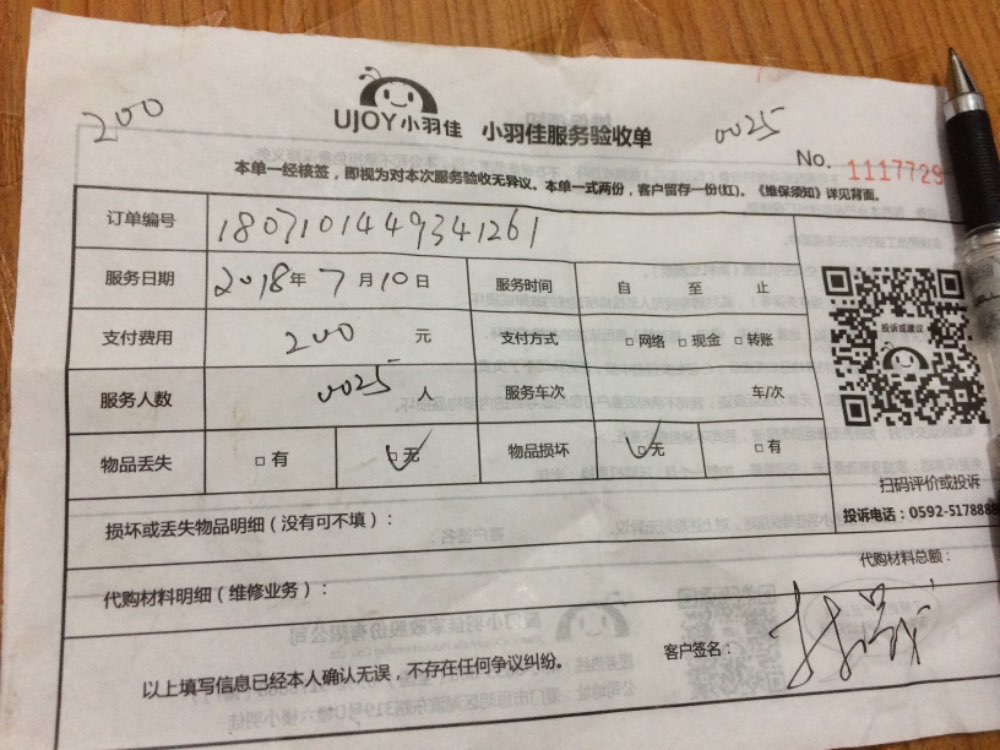 200
UJOY小羽佳 小羽佳服务验收单
0025
No. 1117729
本单一经核签，即视为对本次服务验收无异议。本单一式两份，客户留存一份(红)。《维保须知》详见背面。
订单编号 18071014449341261
服务日期 2018年7月10日 服务时间 自 至 止
支付费用 200 元 支付方式 □网络 □现金 □转账
服务人数 0025 人 服务车次 车/次
物品丢失 □有 □无 物品损坏 □无 □有
投诉或建议
扫码评价或投诉
投诉电话：0592-5178888
损坏或丢失物品明细（没有可不填）：
代购材料明细（维修业务）：
代购材料总额：
以上填写信息已经本人确认无误，不存在任何争议纠纷。
客户签名：